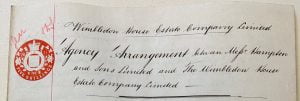 Wimbledon House Estate Company Limited
Agency Arrangement between Messrs Hampton
and Sons Limited and The Wimbledon House
Estate Company Limited